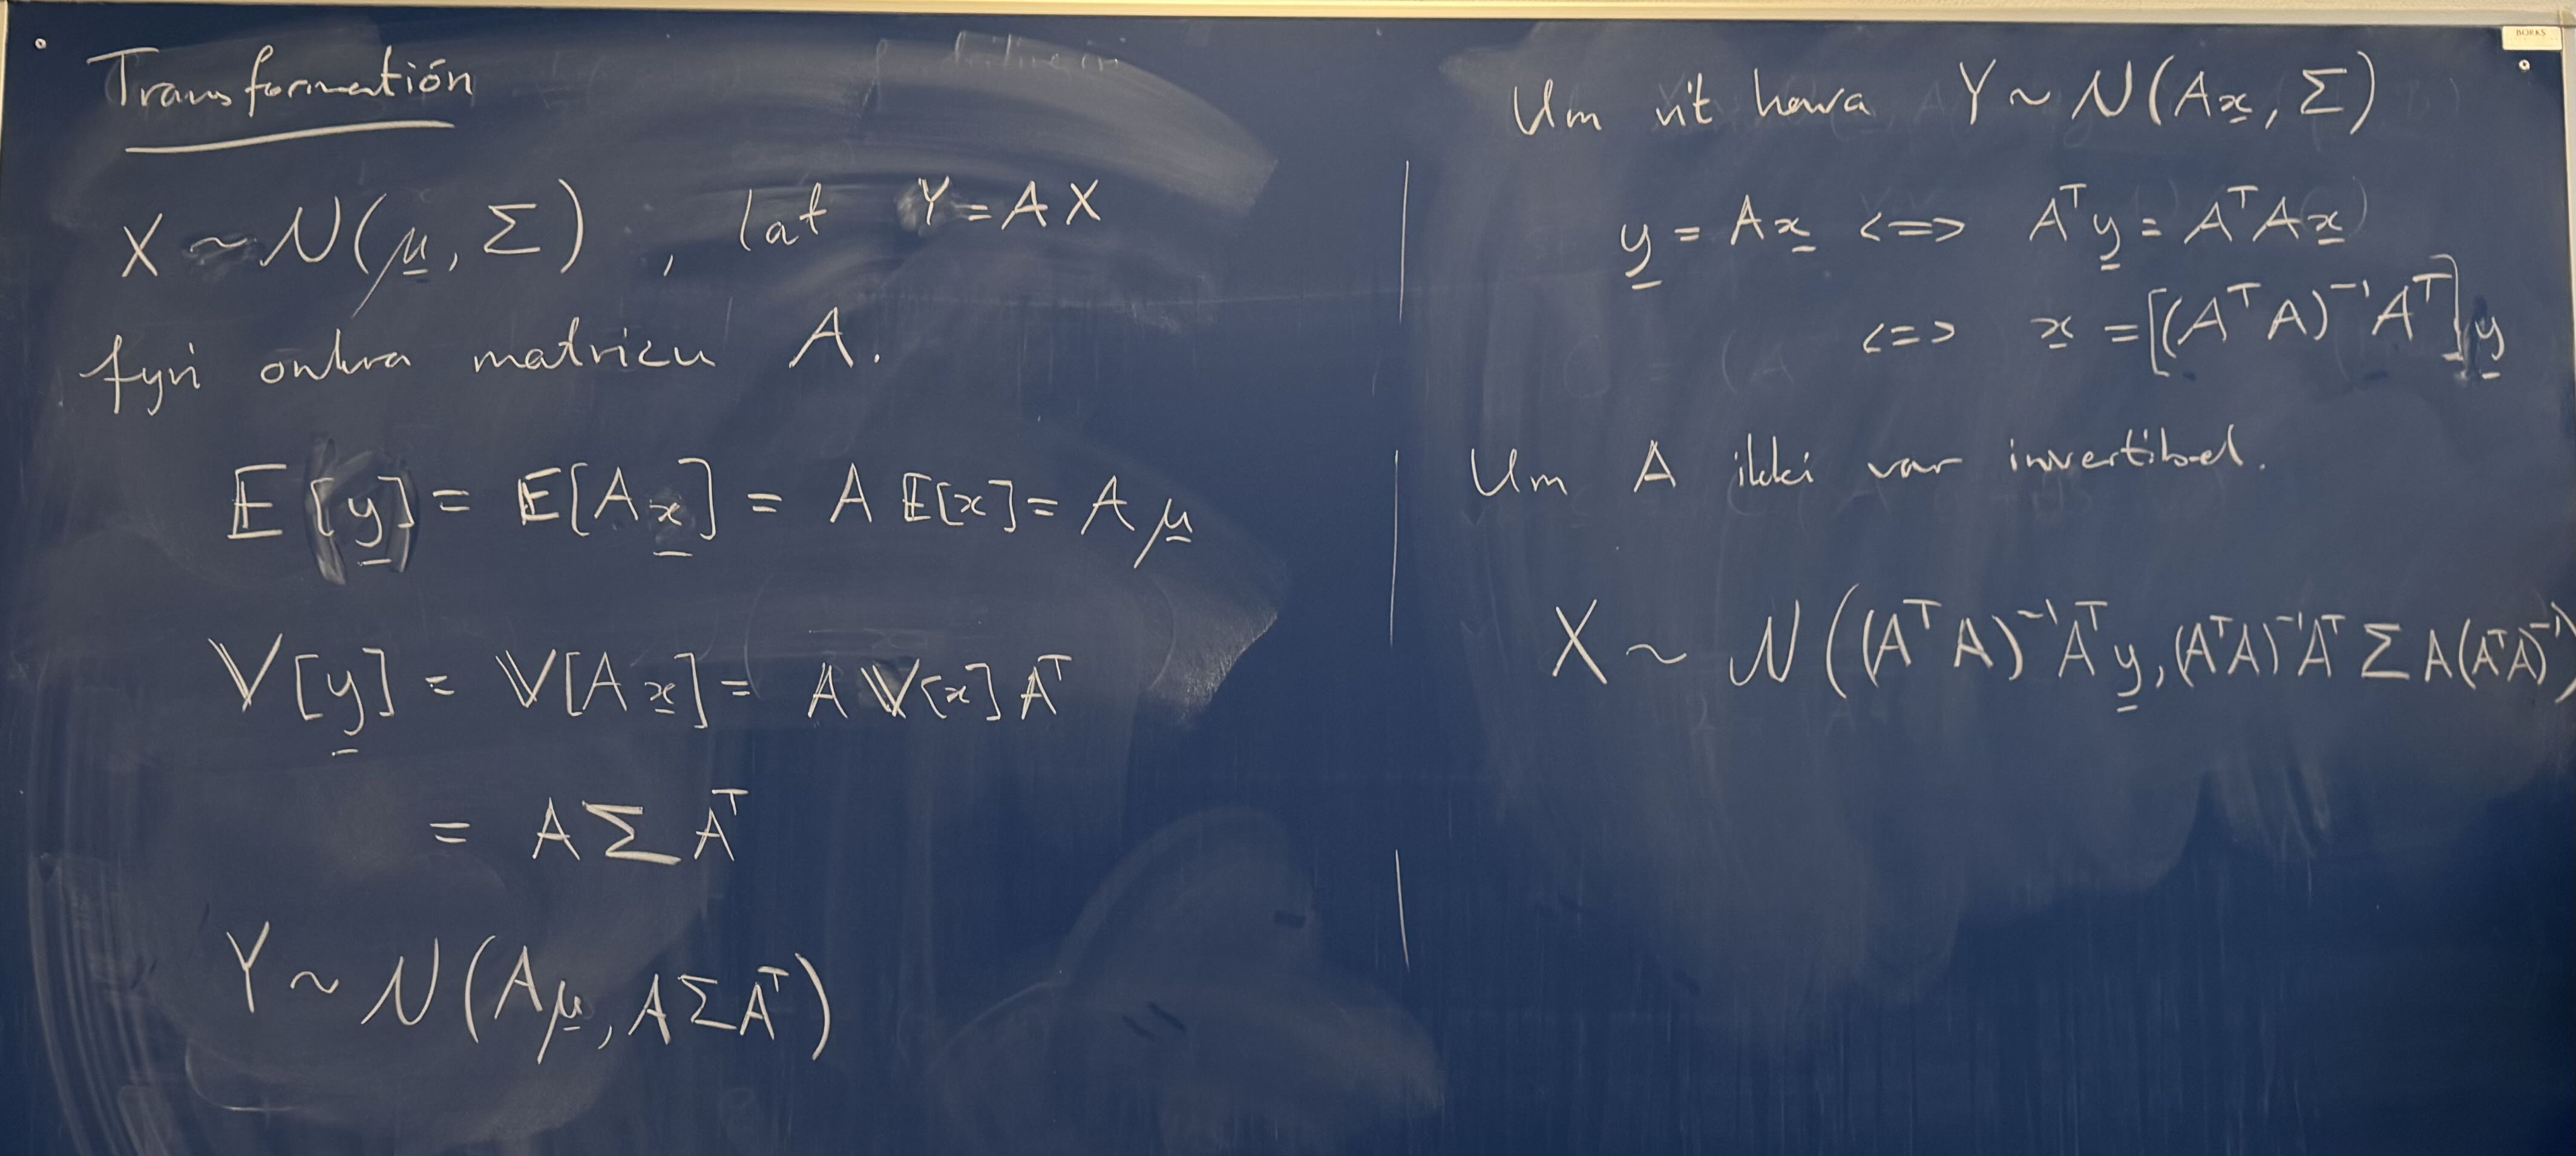 Transformatión
X ~ N(μ, Σ), lat Y = AX
fyri onkra matricu A.
E[y] = E[Ax] = A E[x] = Aμ
V[y] = V[Ax] = A V[x] Aᵀ
= AΣAᵀ
Y ~ N(Aμ, AΣAᵀ)
BORKS
Um vit hava Y ~ N(Ax, Σ)
y = Ax <=> Aᵀy = AᵀAx
<=> x = [(AᵀA)⁻¹Aᵀ]y
Um A ikki var invertibel.
X ~ N((AᵀA)⁻¹Aᵀy, (AᵀA)⁻¹AᵀΣA(AᵀA)⁻¹)